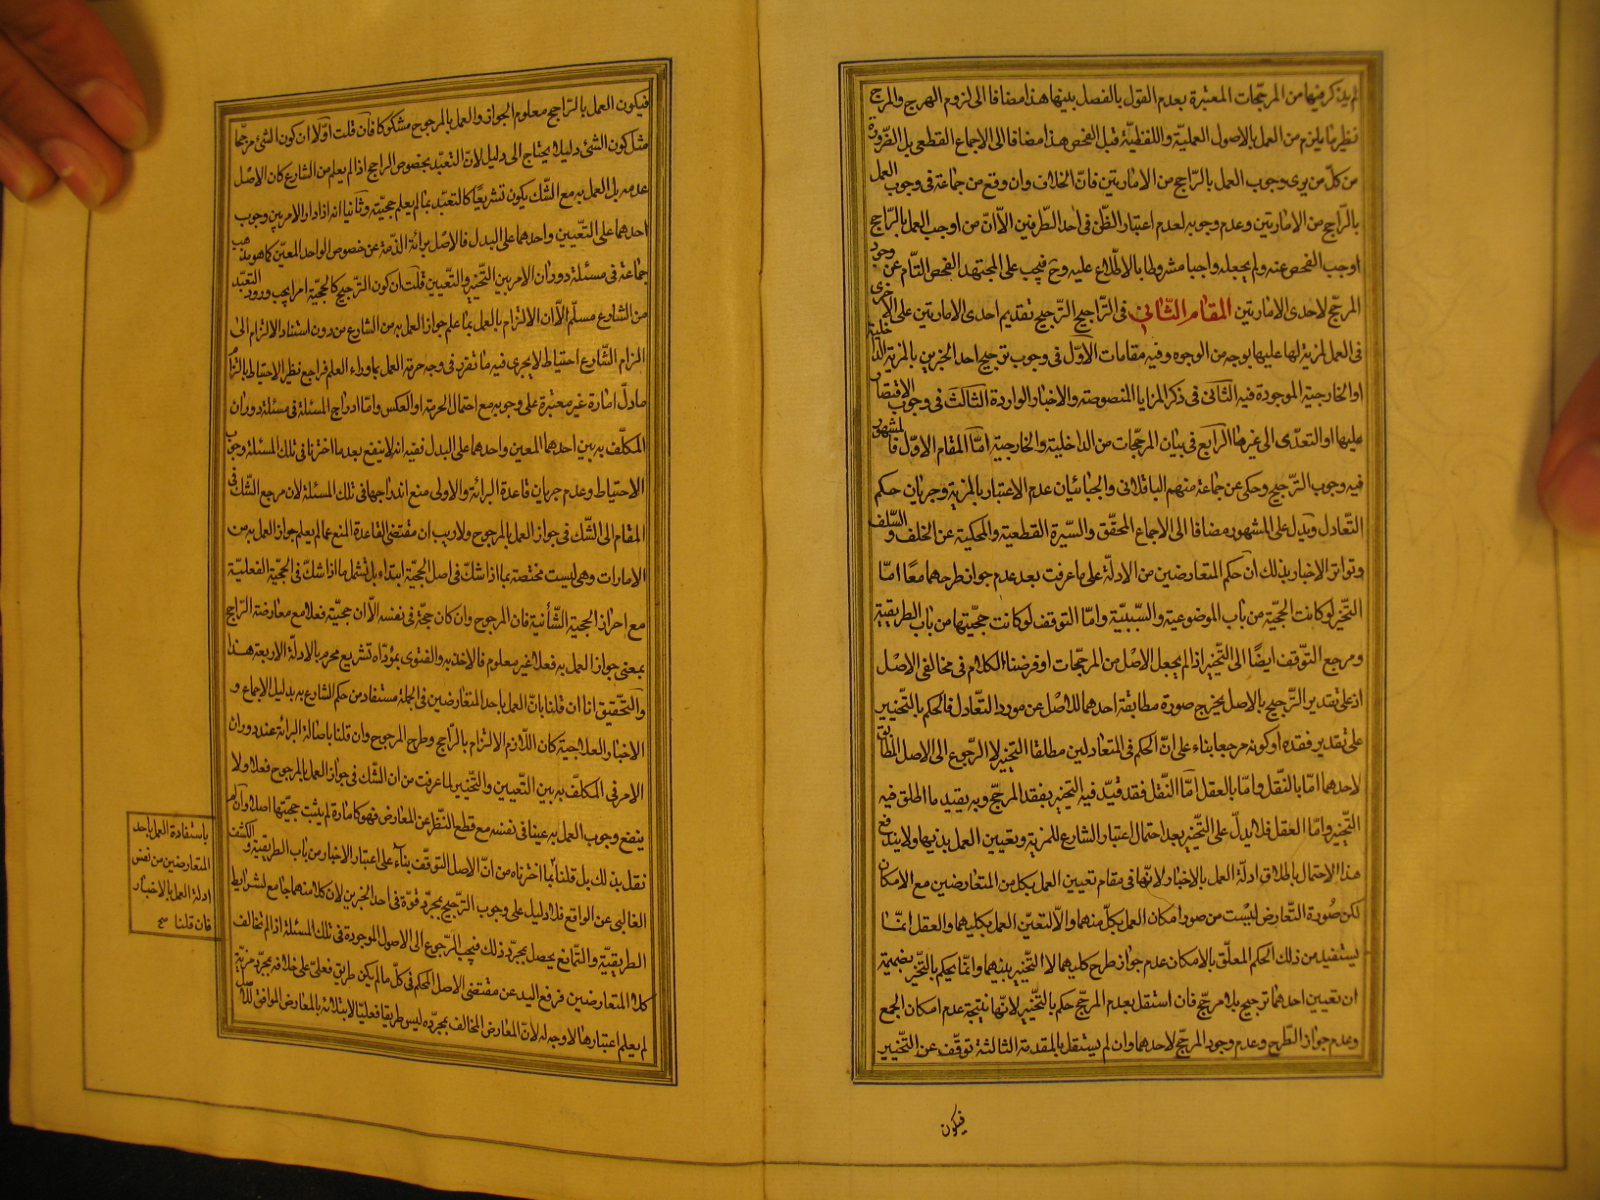 لم يذكر فيها من المرجّحات المعتبرة بعدم القول بالفصل بينها هذا مضافا الى لزوم الهرج والمرج
نظير ما يلزم من العمل بالاصول العمليّة واللفظيّة قبل الفحص هذا مضافا الى الاجماع القطعى بل الضّرورة
من كلّ من يرى وجوب العمل بالرّاجح من الامارتين فانّ الخلاف وان وقع من جماعة فى وجوب العمل
بالرّاجح من الامارتين وعدم وجوبه لعدم اعتبار الظّن فى احد الطّرفين الّا انّ من اوجب العمل بالرّاجح
اوجب الفحص عنه ولم يجعله واجبا مشروطا بالاطّلاع عليه وح فيجب على المجتهد الفحص التّام عن وجود
المرجّح لاحدى الامارتين المقام الثّانى فى التّراجيح التّرجيح تقديم احدى الامارتين على الاخرى
فى العمل لمزيّة لها عليها بوجه من الوجوه وفيه مقامات الاوّل فى وجوب ترجيح احد الخبرين بالمزيّة الدّاخليّة
او الخارجيّة الموجودة فيه الثّانى فى ذكر المزايا المنصوصة والاخبار الواردة الثّالث فى وجوب الاقتصار
عليها او التعدّى الى غيرها الرّابع فى بيان المرجّحات من الداخليّة والخارجيّة امّا المقام الاوّل فالمشهور
فيه وجوب التّرجيح وحكى عن جماعة منهم الباقلانى والجبائيان عدم الاعتبار بالمزيّة وجريان حكم
التّعادل ويدلّ على المشهور مضافا الى الاجماع المحقّق والسّيرة القطعيّة والمحكيّة عن الخلف والسّلف
وتواتر الاخبار بذلك انّ حكم المتعارضين من الادلّة على ما عرفت بعد عدم جواز طرحهما معًا امّا
التّخيير لو كانت الحجيّة من باب الموضوعيّة والسّببيّة وامّا التوقف لو كانت حجيّتها من باب الطريقيّة
ومرجع التّوقف ايضًا الى التّخيير اذا لم يجعل الاصل من المرجّحات او فرضنا الكلام فى مخالفى الاصل
اذ على تقدير التّرجيح بالاصل يخرج صورة مطابقة احدهما للاصل عن مورد التّعادل فالحكم بالتّخيير
على تقدير فقده او كونه مرجعا بناء على انّ الحكم فى المتعادلين مطلقا التّخيير لا الرّجوع الى الاصل المطابق
لاحدهما امّا بالنّقل وامّا بالعقل امّا النّقل فقد قيّد فيه التّخيير بفقد المرجّح وبه يقيد ما اطلق فيه
التّخيير وامّا العقل فلا يدلّ على التّخيير بعد احتمال اعتبار الشارع للمزيّة وتعيين العمل بذيها ولا يندفع
هذا الاحتمال باطلاق ادلّة العمل بالاخبار لانّها فى مقام تعيين العمل بكل من المتعارضين مع الامكان
لكن صورة التّعارض ليست من صور امكان العمل بكلّ منهما والّا لتعيّن العمل بكليهما والعقل انّما
يستفيد من ذلك الحكم المعلّق بالامكان عدم جواز طرح كليهما لا التّخيير بينهما وانّما يحكم بالتّخيير بضميمة
ان تعيين احدهما ترجيح بلا مرجّح فان استقل بعدم المرجّح حكم بالتّخيير لانّها نتيجة عدم امكان الجمع
وعدم جواز الطّرح وعدم وجود المرجّح لاحدهما وان لم يستقل بالمقدمة الثالثة توقّف عن التّخيير
فيكون
فيكون العمل بالرّاجح معلوم الجواز والعمل بالمرجوح مشكوكا فان قلت اوّلا ان كون الشئ مرجّحا
مثل كون الشئ دليلا يحتاج الى دليل لانّ التعبّد بخصوص الراجح اذا لم يعلم من الشارع كان الاصل
عدمه بل العمل به مع الشّك يكون تشريعًا كالتعبّد بما لم يعلم حجيّته وثانيا انه اذا دار الامر بين وجوب
احدهما على التّعيين واحدهما على البدل فالاصل برائة الذّمة عن خصوص الواحد المعيّن كما هو مذهب
جماعة فى مسئلة دوران الامر بين التّخيير والتّعيين قلت ان كون التّرجيح كالحجيّة امرا يجب ورود التعبّد
من الشارع مسلّم الّا ان الالتزام بالعمل بما علم جواز العمل به من الشارع من دون استناد الالزام الى
الزام الشّارع احتياط لا يجرى فيه ما تقرّر فى وجه حرمة العمل بما وراء العلم فراجع نظير الاحتياط بالتزام
ما دلّ امارة غير معتبرة على وجوبه مع احتمال الحرمة او العكس وامّا ادراج المسئلة فى مسئلة دوران
المكلّف به بين احدهما المعين واحدهما على البدل ففيه انه لا ينفع بعد ما اخترنا فى تلك المسئلة وجوب
الاحتياط وعدم جريان قاعدة البرائة والاولى منع اندراجها فى تلك المسئلة لان مرجع الشّك فى
المقام الى الشّك فى جواز العمل بالمرجوح ولا ريب ان مقتضى القاعدة المنع عمّا لم يعلم جواز العمل به من
الامارات وهى ليست مختصّة بما اذا شكّ فى اصل الحجيّة ابتداء بل تشمل ما اذا شكّ فى الحجيّة الفعليّة
مع احراز الحجية الشّأنية فان المرجوح وان كان حجّة فى نفسه الّا ان حجيّته فعلا مع معارضة الرّاجح
بمعنى جواز العمل به فعلا غير معلوم فالاخذ به والفتوى بمؤدّاه تشريع محرم بالادلّة الاربعة هذا
والتّحقيق انا ان قلنا بانّ العمل باحد المتعارضين فى الجملة مستفاد من حكم الشارع به بدليل الاجماع و
الاخبار العلاجية كان اللّازم الالتزام بالرّاجح وطرح المرجوح وان قلنا باصالة البرائة عند دوران
الامر فى المكلّف به بين التّعيين والتّخيير لما عرفت من ان الشّك فى جواز العمل بالمرجوح فعلا ولا
ينفع وجوب العمل به عينا فى نفسه مع قطع النّظر عن المعارض فهو كامارة لم يثبت حجيّتها اصلا وان لم
نقل بذلك بل قلنا بما اخترناه من انّ الاصل التوقّف بناءً على اعتبار الاخبار من باب الطريقيّة والكشف
الغالبى عن الواقع فلا دليل على وجوب التّرجيح بمجرّد قوّة فى احد الخبرين لانّ كلا منهما جامع لشرايط
الطريقيّة والتّمانع يحصل بمجرّد ذلك فيجب الرّجوع الى الاصول الموجودة فى تلك المسئلة اذا لم تخالف
كلا المتعارضين فرفع اليد عن مقتضى الاصل المحكم فى كلّ ما لم يكن طريق فعلىّ على خلافه بمجرّد مزيّة
لم يعلم اعتبارها لا وجه له لانّ المعارض المخالف بمجرّده ليس طريقا فعليّا لابتلائه بالمعارض الموافق للاصل
باستفادة العمل باحد
المتعارضين من نفس
ادلة العمل بالاخبار
فان قلنا صح